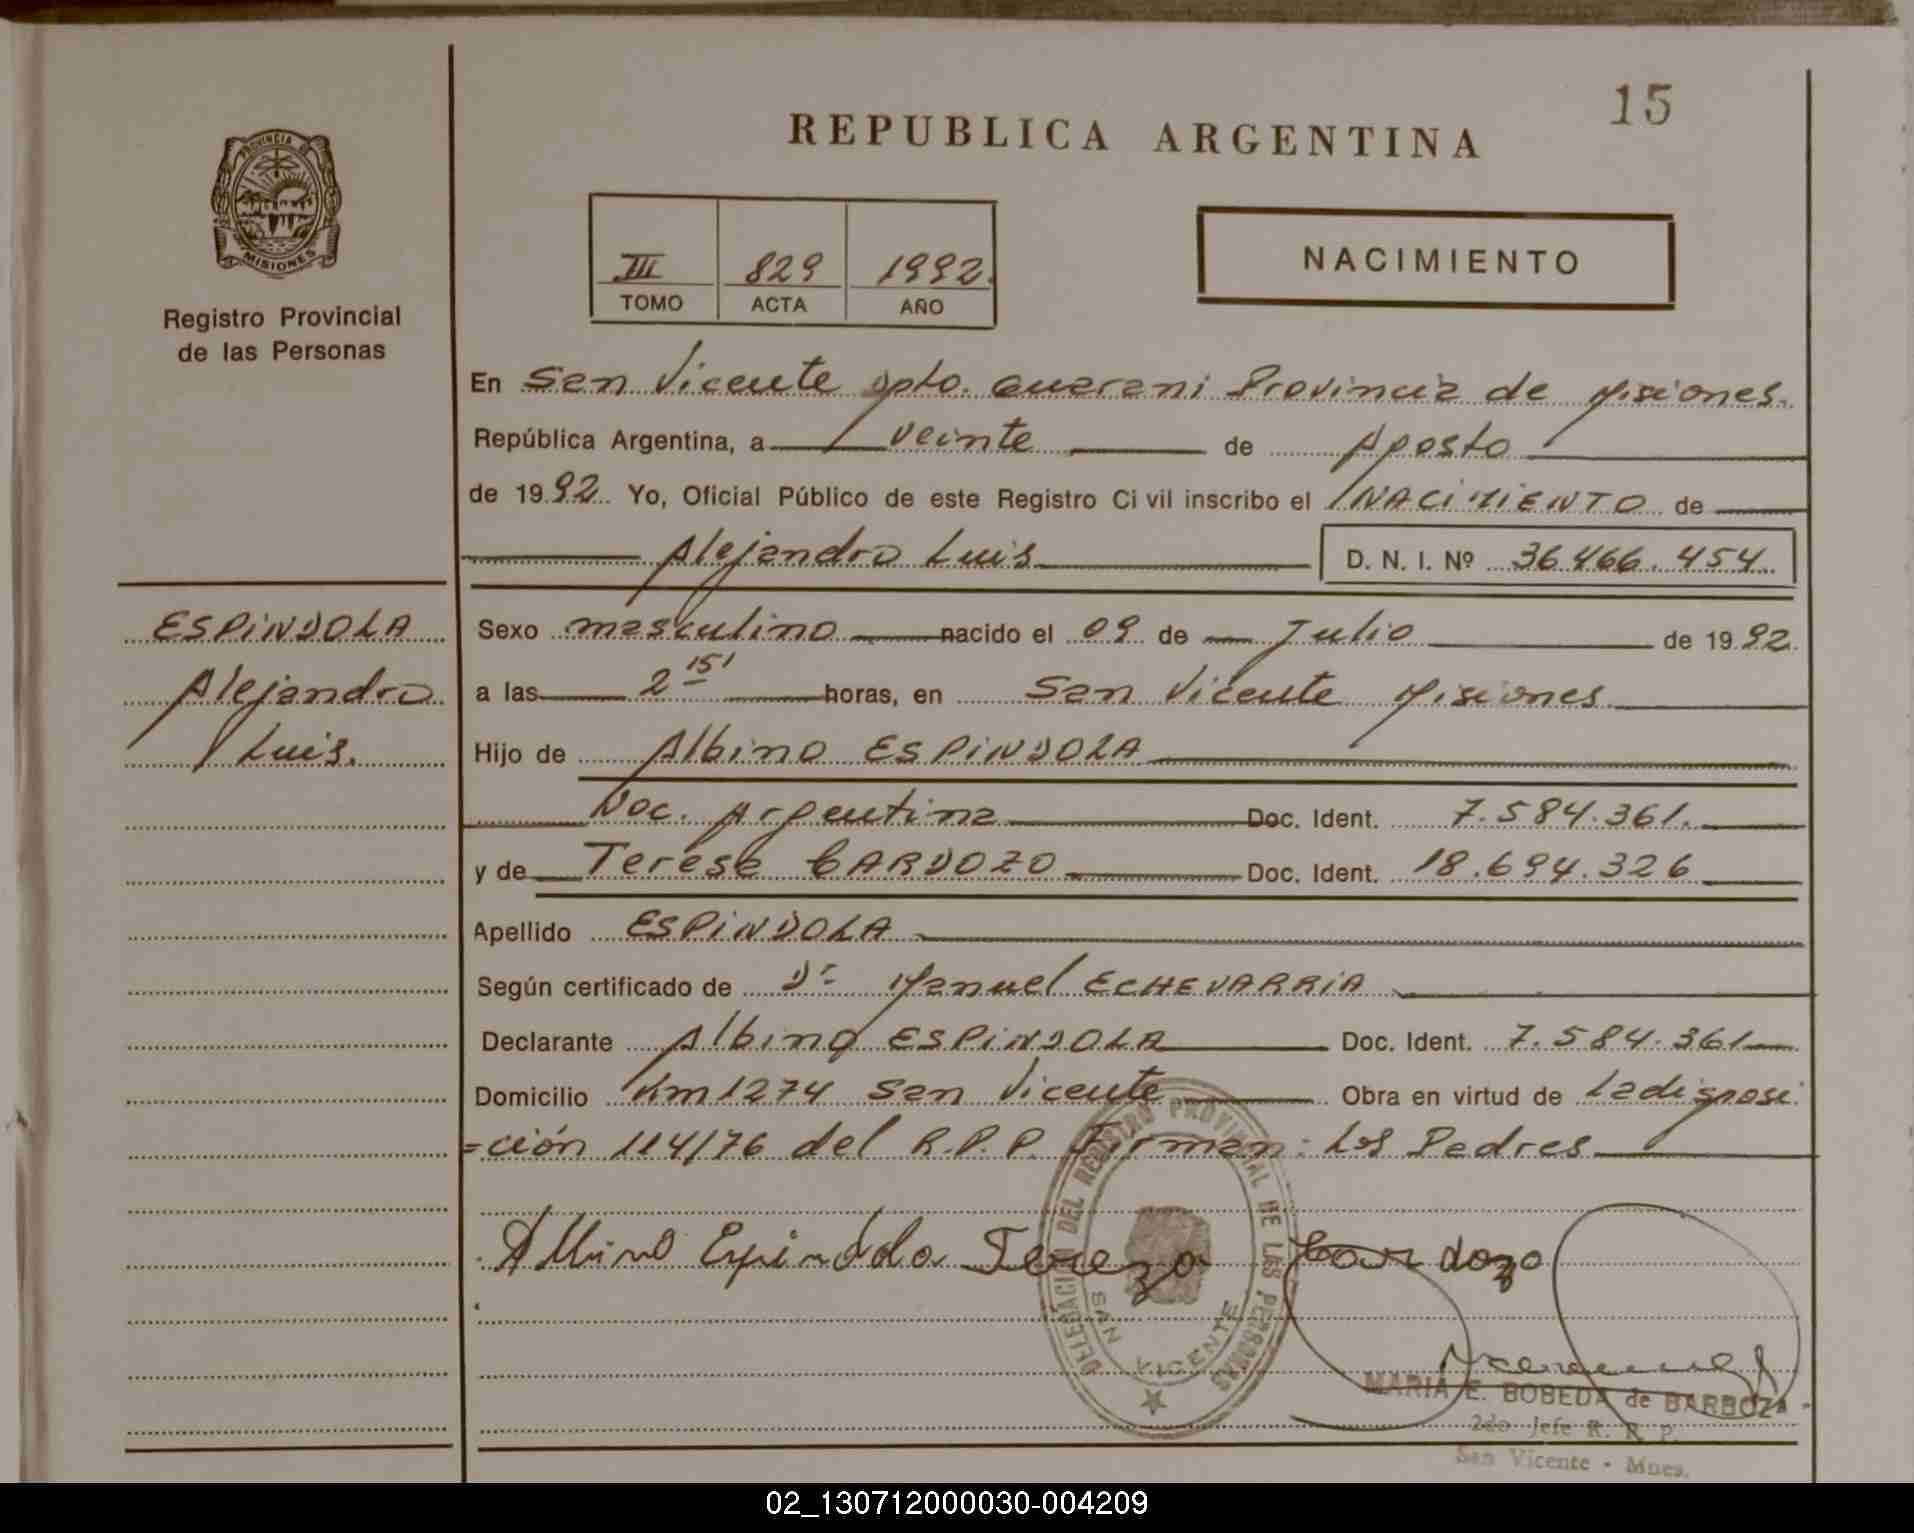 15
REPUBLICA ARGENTINA
PROVINCIA DE
MISIONES
Registro Provincial
de las Personas
III 829 1992.
TOMO ACTA AÑO
NACIMIENTO
En San Vicente Dpto. Guarani Provincia de Misiones.
República Argentina, a veinte de Agosto
de 1992. Yo, Oficial Público de este Registro Civil inscribo el NACIMIENTO de
Alejandro Luis D. N. I. Nº 36.466.454.
ESPINDOLA
Alejandro
Luis.
Sexo masculino nacido el 09 de Julio de 1992.
a las 2 15' horas, en San Vicente Misiones
Hijo de Albino ESPINDOLA
Nac. Argentina Doc. Ident. 7.584.361.
y de Teresa CARDOZO Doc. Ident. 18.694.326
Apellido ESPINDOLA
Según certificado de Dr Manuel ECHEVARRIA
Declarante Albino ESPINDOLA Doc. Ident. 7.584.361
Domicilio Km 1274 San Vicente Obra en virtud de La disposi
=ción 114/76 del R.P.P. Firman: Los Padres
Albino Espindola Tereza Cardozo
DELEGACI DEL REGISTRO PROVINCIAL DE LAS PERSONAS
SAN VICENTE
MARIA E. BOBEDA de BARBOZA
2do Jefe R. R. P.
San Vicente - Mnes.
02_130712000030-004209